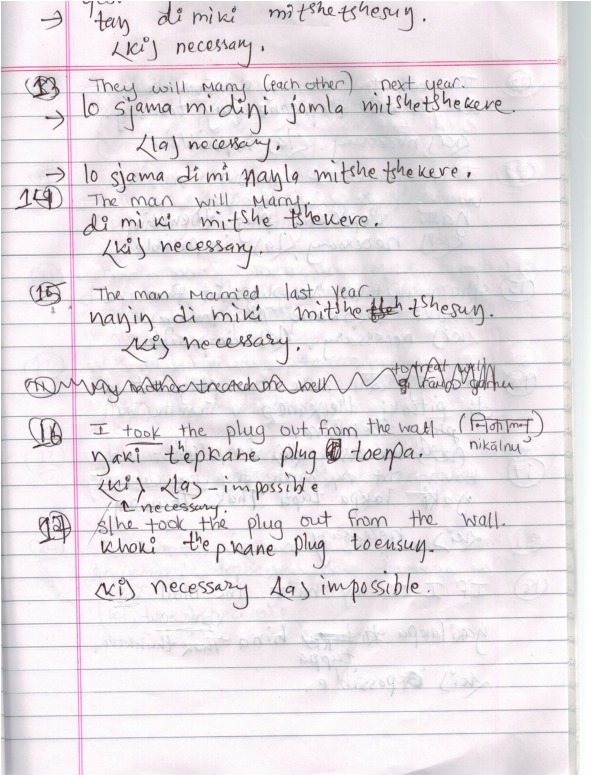 → taŋ di miki mitshetshesuŋ.
<ki> necessary.
13 They will Marry (each other) next year.
→ lo sjama mi diŋi jomla mitshetshekere.
<la> necessary.
→ lo sjama di mi ŋaŋla mitshe tshekere.
14 The man will Marry.
di mi ki mitshe tshekere.
<ki> necessary.
15 The man Married last year.
naŋiŋ di miki mitshe tshesuŋ.
<ki> necessary.
16 I took the plug out from the wall (निकाल्नु)
nikālnu
ŋaki thepkane plug toenpa.
<ki> <la> - impossible
↑ necessary.
17 s/he took the plug out from the wall.
khoki thepkane plug toensuŋ.
<ki> necessary <la> impossible.